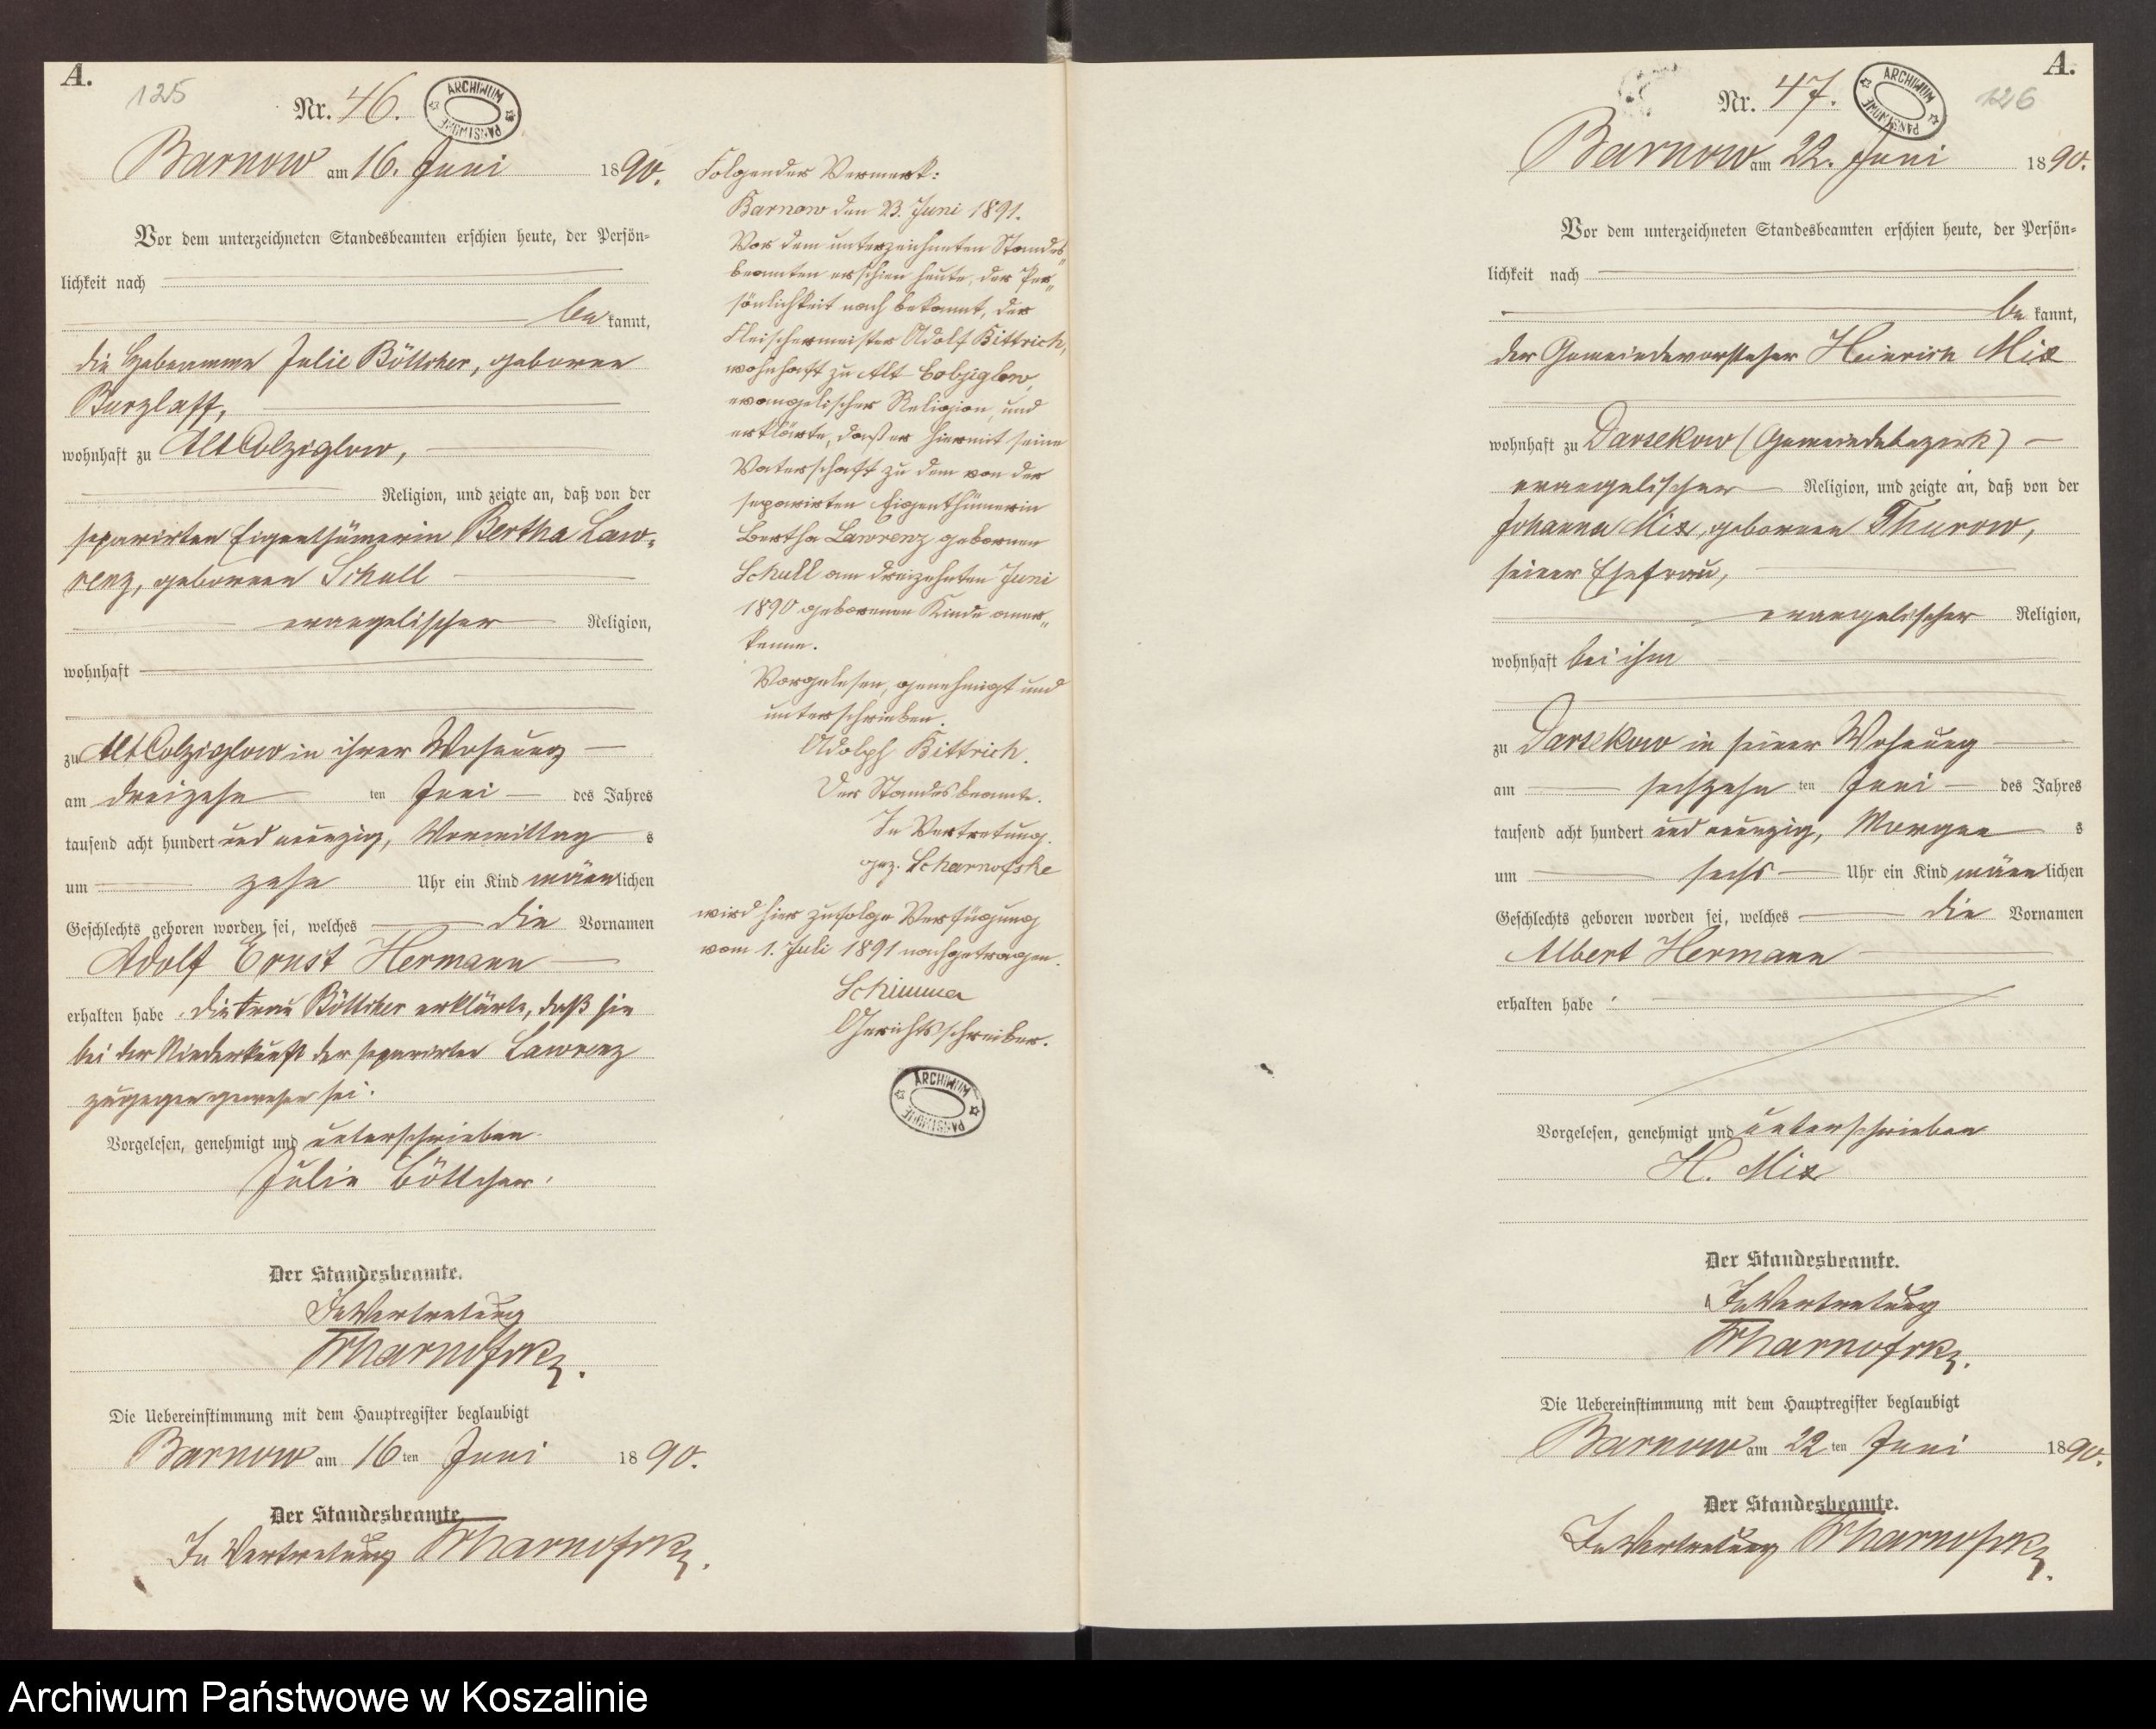 A.
125
Nr. 46.
ARCHIWUM PAŃSTWOWE
Barnow am 16. Juni 1890.
Vor dem unterzeichneten Standesbeamten erschien heute, der Persön-
lichkeit nach
be kannt,
die Hebeamme Julie Böttcher, geborne
Burzlaff,
wohnhaft zu Alt Colziglow,
Religion, und zeigte an, daß von der
separirten Eigenthümerin Bertha Law-
renz, geborenen Schull
evangelischer Religion,
wohnhaft
zu Alt Colziglow in ihrer Wohnung
am dreizehn ten Juni des Jahres
tausend acht hundert und neunzig, Vormittag s
um zehn Uhr ein Kind männlichen
Geschlechts geboren worden sei, welches die Vornamen
Adolf Ernst Hermann
erhalten habe. Die Frau Böttcher erklärte, daß sie
bei der Niederkunft der separirten Lawrenz
zugegen gewesen sei.
Vorgelesen, genehmigt und unterschrieben.
Julie Böttcher.
Der Standesbeamte.
In Vertretung
Scharnofske.
Die Uebereinstimmung mit dem Hauptregister beglaubigt
Barnow am 16ten Juni 1890.
Der Standesbeamte.
In Vertretung Scharnofske.
Folgender Vermerk:
Barnow den 23. Juni 1891.
Vor dem unterzeichneten Standes-
beamten erschien heute, der Per-
sönlichkeit nach bekannt, der
Fleischermeister Adolf Kittrich,
wohnhaft zu Alt Colziglow,
evangelischer Religion, und
erklärte, daß er hiermit seine
Vaterschaft zu dem von der
separirten Eigenthümerin
Bertha Lawrenz gebornen
Schull am dreizehnten Juni
1890 geborenen Kinde aner-
kenne.
Vorgelesen, genehmigt und
unterschrieben.
Adolph Kittrich.
Der Standesbeamte.
In Vertretung.
gez. Scharnofske
wird hier zufolge Verfügung
vom 1. Juli 1891 nachgetragen.
Schimma
Gerichtsschreiber.
ARCHIWUM PAŃSTWOWE
A.
126
Nr. 47.
ARCHIWUM PAŃSTWOWE
Barnow am 22. Juni 1890.
Vor dem unterzeichneten Standesbeamten erschien heute, der Persön-
lichkeit nach
be kannt,
der Gemeindevorsteher Heinrich Mix
wohnhaft zu Darsekow (Gemeindebezirk)
evangelischer Religion, und zeigte an, daß von der
Johanna Mix, geborenen Thurow,
seiner Ehefrau,
evangelischer Religion,
wohnhaft bei ihm
zu Darsekow in seiner Wohnung
am sechzehn ten Juni des Jahres
tausend acht hundert und neunzig, Morgen s
um sechs Uhr ein Kind männlichen
Geschlechts geboren worden sei, welches die Vornamen
Albert Hermann
erhalten habe.
Vorgelesen, genehmigt und unterschrieben
H. Mix
Der Standesbeamte.
In Vertretung
Scharnofske.
Die Uebereinstimmung mit dem Hauptregister beglaubigt
Barnow am 22ten Juni 1890.
Der Standesbeamte.
In Vertretung Scharnofske.
Archiwum Państwowe w Koszalinie